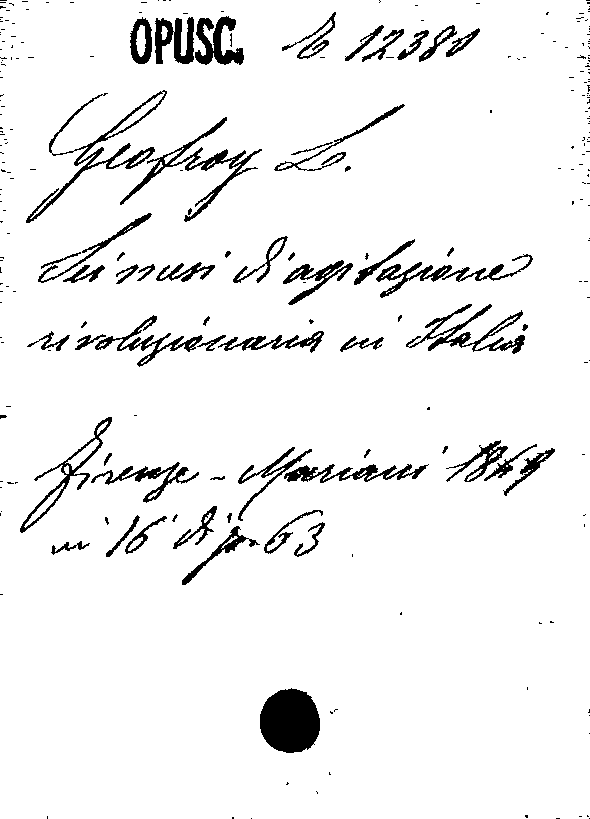 OPUSC. E 12380
Geofroy L.
Sei mesi di agitazione
rivoluzionaria in Italia
Firenze - Mariani 1849
in 16 di p. 63